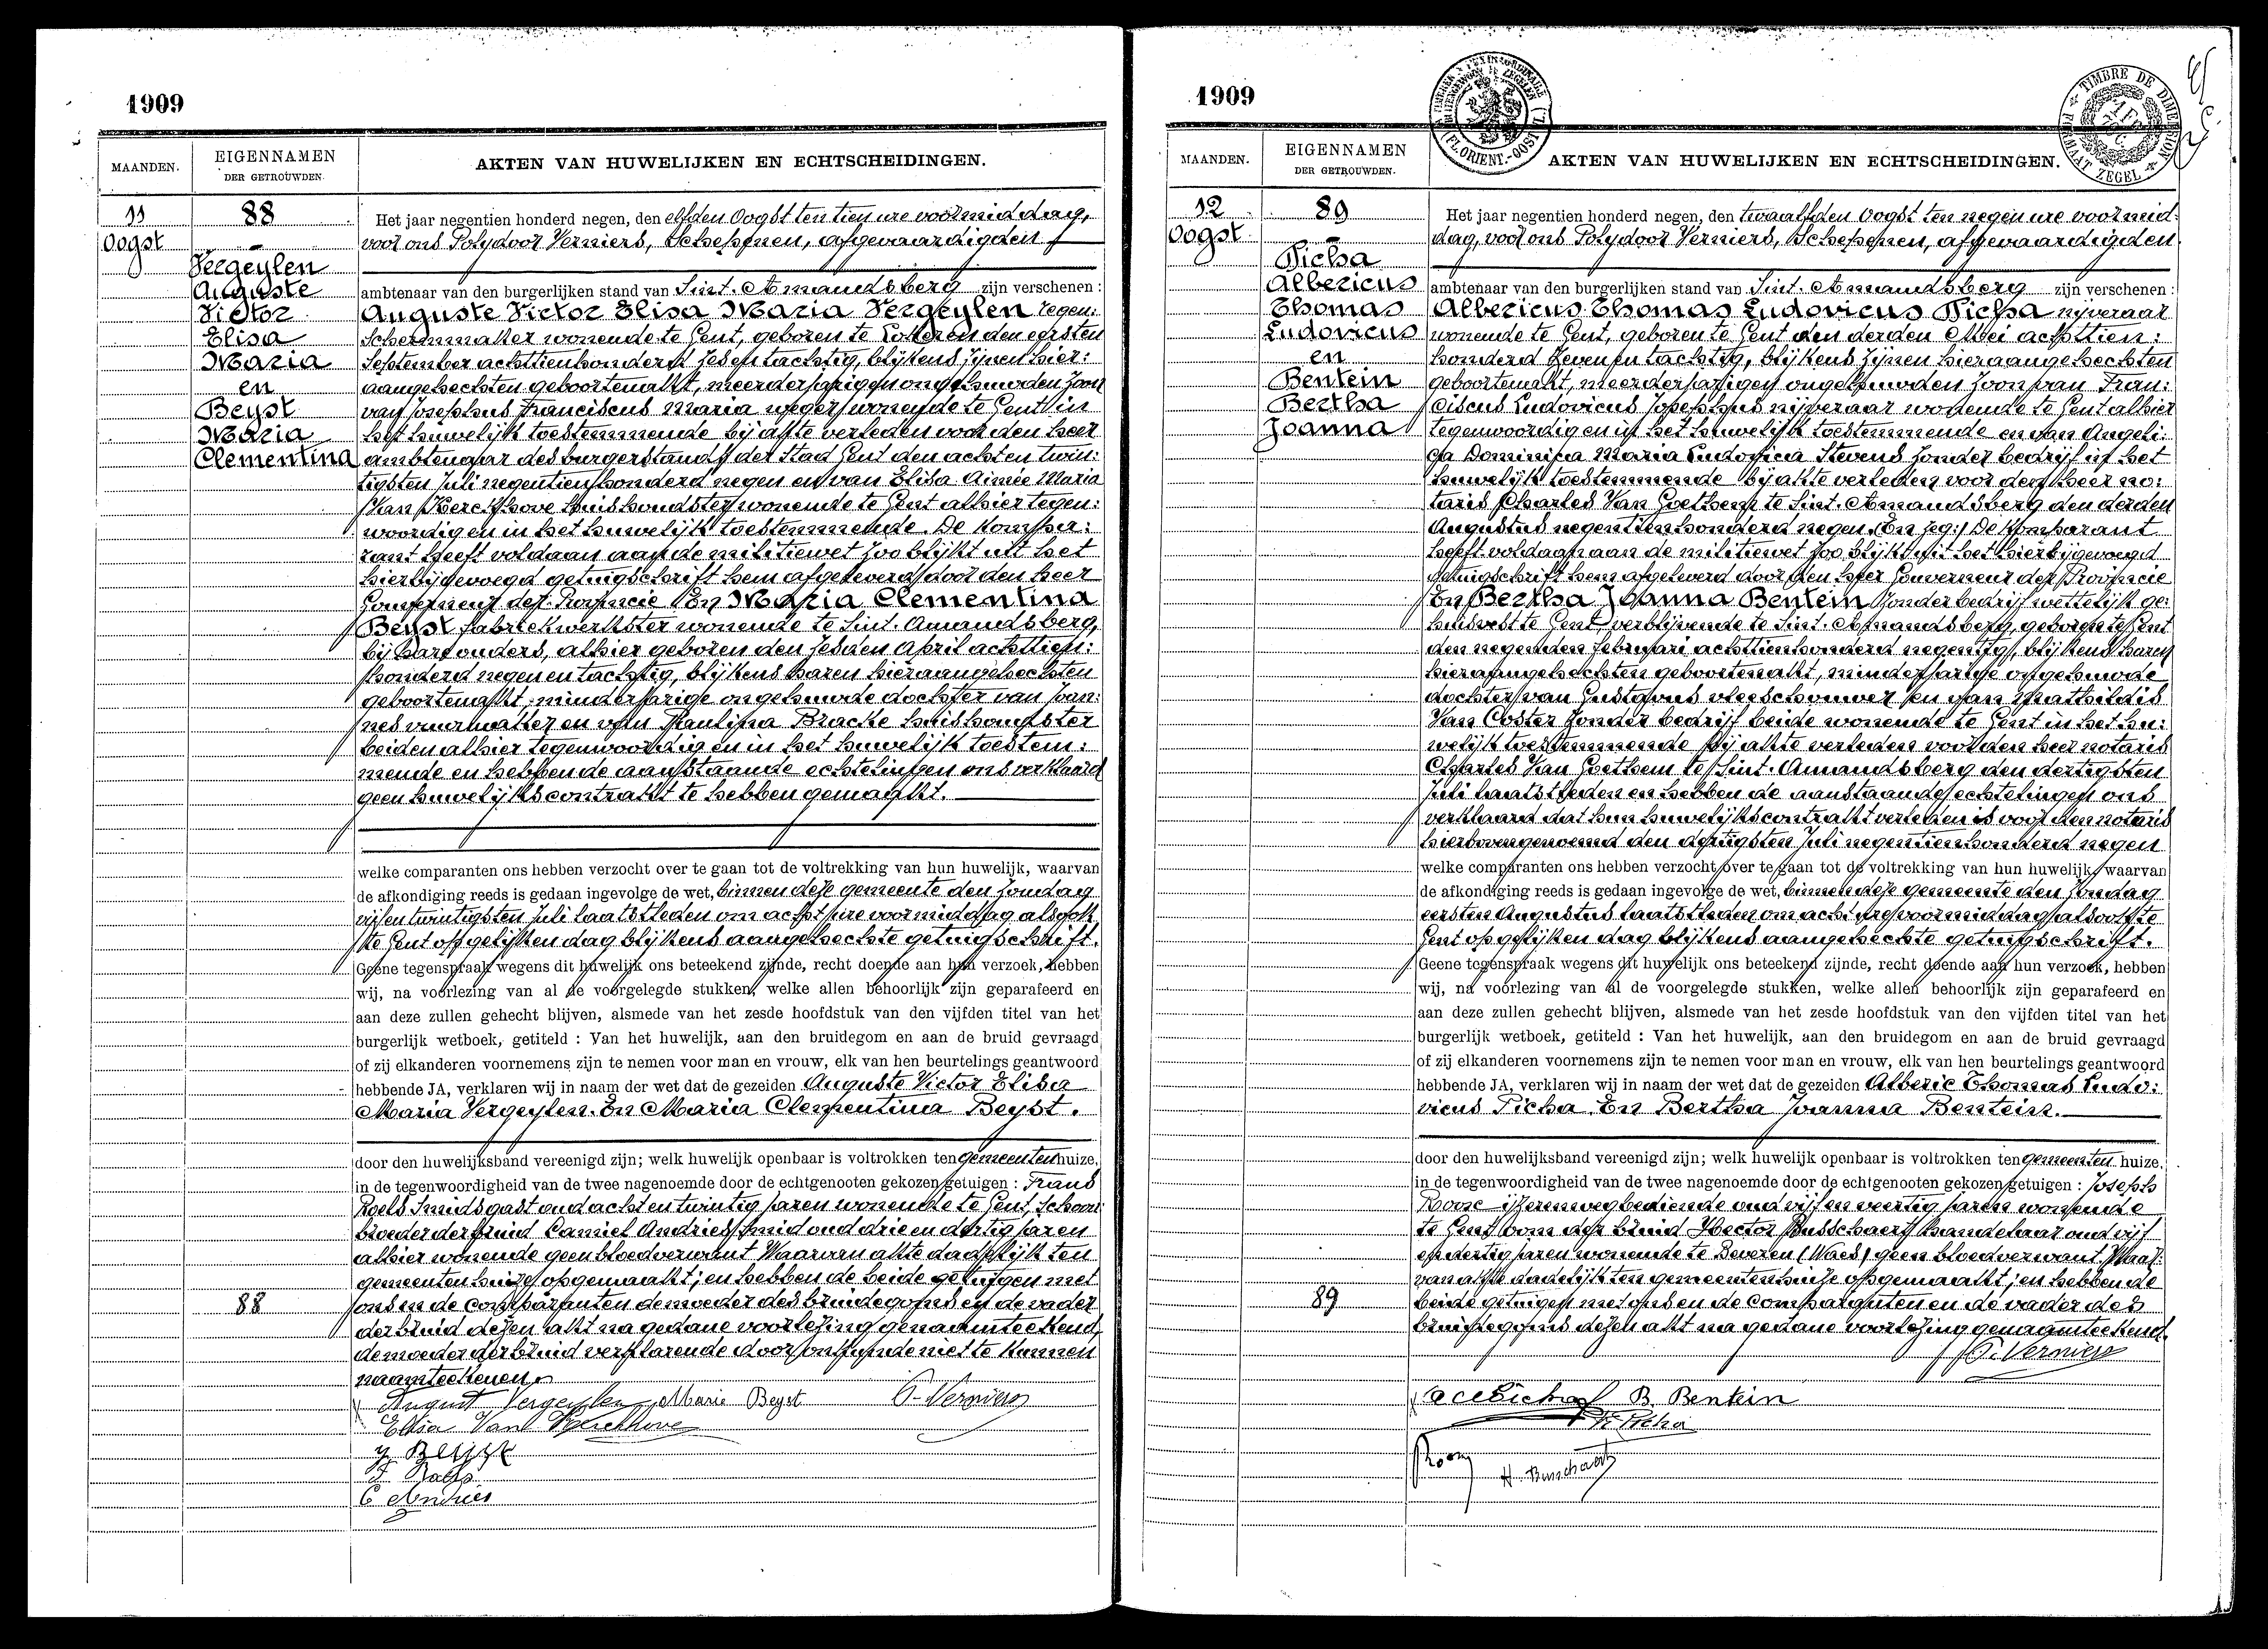 1909
MAANDEN.
EIGENNAMEN
DER GETROUWDEN.
AKTEN VAN HUWELIJKEN EN ECHTSCHEIDINGEN.
11
Oogst
88
Vergeylen
Auguste
Victor
Elisa
Maria
en
Beyst
Maria
Clementina
Het jaar negentien honderd negen, den elfden Oogst ten tien ure voormiddag,
voor ons Polydoor Verniers, Schepenen, afgevaardigden
ambtenaar van den burgerlijken stand van Sint-Amandsberg zijn verschenen :
Auguste Victor Elisa Maria Vergeylen regen:
schermmaker wonende te Gent, geboren te Lokeren den eersten
September achttienhonderd zes en tachtig, blijkens zijnen hier:
aangehechten geboortenakt, meerderjarigen ongehuwden zoon
van Josephus Franciscus Maria weger wonende te Gent in
het huwelijk toestemmende bij akte verleden voor den heer
ambtenaar des burgerstands der Stad Gent den achten twin:
tigsten Juli negentienhonderd negen en van Elisa Aimée Maria
Van Kerckhove huishoudster wonende te Gent alhier tegen:
woordig en in het huwelijk toestemmende. De Kompa:
rant heeft voldaan aan de militiewet zoo blijkt uit het
hierbijgevoegd getuigschrift hem afgeleverd door den heer
Gouverneur der Provincie En Maria Clementina
Beyst fabriekwerkster wonende te Sint-Amandsberg,
bij hare ouders, alhier geboren den zesden April achttien:
honderd negen en tachtig, blijkens haren hieraangehechten
geboortenakt, minderjarige ongehuwde dochter van Joan:
nes vuurmaker en van Paulina Bracke huishoudster
beiden alhier tegenwoordig en in het huwelijk toestem:
mende en hebben de aanstaande echtelingen ons verklaard
geen huwelijkscontrakt te hebben gemaakt.
welke comparanten ons hebben verzocht over te gaan tot de voltrekking van hun huwelijk, waarvan
de afkondiging reeds is gedaan ingevolge de wet, binnen deze gemeente den Zondag
vijfentwintigsten Juli laatstleden om acht ure voormiddag alsook
te Gent op gelijken dag blijkens aangehechte getuigschrift.
Geene tegenspraak wegens dit huwelijk ons beteekend zijnde, recht doende aan hun verzoek, hebben
wij, na voorlezing van al de voorgelegde stukken, welke allen behoorlijk zijn geparafeerd en
aan deze zullen gehecht blijven, alsmede van het zesde hoofdstuk van den vijfden titel van het
burgerlijk wetboek, getiteld : Van het huwelijk, aan den bruidegom en aan de bruid gevraagd
of zij elkanderen voornemens zijn te nemen voor man en vrouw, elk van hen beurtelings geantwoord
hebbende JA, verklaren wij in naam der wet dat de gezeiden Auguste Victor Elisa
Maria Vergeylen. En Maria Clementina Beyst.
door den huwelijksband vereenigd zijn; welk huwelijk openbaar is voltrokken ten gemeentenhuize,
in de tegenwoordigheid van de twee nagenoemde door de echtgenooten gekozen getuigen : Frans
Roels Smidsgast oud acht en twintig jaren wonende te Gent, Schoon:
broeder der bruid Camiel Andries Smid oud drie en dertig jaren
alhier wonende geen bloedverwant Waarvan akte dadelijk ten
gemeentenhuize opgemaakt; en hebben de beide getuigen met
ons en de comparanten de moeder des bruidegoms en de vader
der bruid dezen akt na gedane voorlezing genaamteekend,
de moeder der bruid verklarende door onkunde niet te kunnen
naamteekenen.
88
August Vergeylen Marie Beyst P. Verniers
Elisa Van Kerckhove
J. Beyst
F. Roels
C Andries
1909
MAANDEN.
EIGENNAMEN
DER GETROUWDEN.
AKTEN VAN HUWELIJKEN EN ECHTSCHEIDINGEN.
TIMBRE DE DIMENSION
ZEGEL
12
Oogst
89
Picha
Albericus
Thomas
Ludovicus
en
Bentein
Bertha
Joanna
Het jaar negentien honderd negen, den twaalfden Oogst ten negen ure voormid:
dag, voor ons Polydoor Verniers, Schepenen, afgevaardigden
ambtenaar van den burgerlijken stand van Sint-Amandsberg zijn verschenen :
Albericus Thomas Ludovicus Picha nijveraar
wonende te Gent, geboren te Gent den derden Mei achttien:
honderd zeven en tachtig, blijkens zijnen hieraangehechten
geboortenakt, meerderjarigen ongehuwden zoon van Fran:
ciscus Ludovicus Josephus nijveraar wonende te Gent alhier
tegenwoordig en in het huwelijk toestemmende en van Angeli:
ca Dominica Maria Ludovica Stevens zonder bedrijf in het
huwelijk toestemmende bij akte verleden voor den heer no:
taris Charles Van Goethem te Sint-Amandsberg den derden
Augustus negentienhonderd negen. De Komparant
heeft voldaan aan de militiewet zoo blijkt uit het hierbijgevoegd
getuigschrift hem afgeleverd door den heer Gouverneur der Provincie
En Bertha Joanna Bentein zonder bedrijf wettelijk ge:
huisvest te Gent verblijvende te Sint-Amandsberg, geboren te Gent
den negenden Februari achttienhonderd negentig, blijkens haren
hieraangehechten geboortenakt, minderjarige ongehuwde
dochter van Gustavus vleeschouwer en van Mathildis
Van Coster zonder bedrijf beide wonende te Gent in het hu:
welijk toestemmende bij akte verleden voor den heer notaris
Charles Van Goethem te Sint-Amandsberg den dertigsten
Juli laatstleden en hebben de aanstaande echtelingen ons
verklaard dat hun huwelijkscontrakt verleden is voor den notaris
hierbovengenoemd den dertigsten Juli negentienhonderd negen
welke comparanten ons hebben verzocht over te gaan tot de voltrekking van hun huwelijk, waarvan
de afkondiging reeds is gedaan ingevolge de wet, binnen deze gemeente den Zondag
eersten Augustus laatstleden om acht ure voormiddag alsook te
Gent op gelijken dag blijkens aangehechte getuigschrift.
Geene tegenspraak wegens dit huwelijk ons beteekend zijnde, recht doende aan hun verzoek, hebben
wij, na voorlezing van al de voorgelegde stukken, welke allen behoorlijk zijn geparafeerd en
aan deze zullen gehecht blijven, alsmede van het zesde hoofdstuk van den vijfden titel van het
burgerlijk wetboek, getiteld : Van het huwelijk, aan den bruidegom en aan de bruid gevraagd
of zij elkanderen voornemens zijn te nemen voor man en vrouw, elk van hen beurtelings geantwoord
hebbende JA, verklaren wij in naam der wet dat de gezeiden Alberic Thomas Ludo:
vicus Picha. En Bertha Joanna Bentein.
door den huwelijksband vereenigd zijn; welk huwelijk openbaar is voltrokken ten gemeenten huize,
in de tegenwoordigheid van de twee nagenoemde door de echtgenooten gekozen getuigen : Joseph
Roose ijzerenwegbediende oud vijf en veertig jaren wonende
te Gent oom der bruid Hector Busschaert handelaar oud vijf
en dertig jaren wonende te Beveren (Waes) geen bloedverwant. Waar:
van akte dadelijk ten gemeentenhuize opgemaakt; en hebben de
beide getuigen met ons en de comparanten en de vader des
bruidegoms dezen akt na gedane voorlezing genaamteekend.
89
P. Verniers
B. Bentein
Picha
H. Busschaert